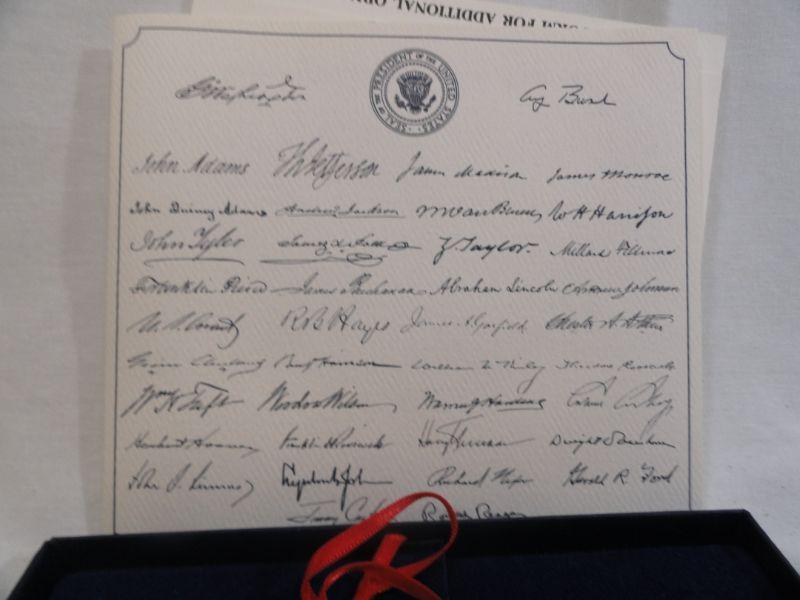 RM FOR ADDITIONAL OR
SEAL OF THE PRESIDENT OF THE UNITED STATES
G Washington G Bush
John Adams Th Jefferson James Madison James Monroe
John Quincy Adams Andrew Jackson M Van Buren W H Harrison
John Tyler James K Polk Z. Taylor. Millard Fillmore
Franklin Pierce James Buchanan Abraham Lincoln Andrew Johnson
U. S. Grant R B Hayes James A Garfield Chester A. Arthur
Grover Cleveland Benj Harrison William McKinley Theodore Roosevelt
Wm H Taft Woodrow Wilson Warren G Harding Calvin Coolidge
Herbert Hoover Franklin D Roosevelt Harry Truman Dwight D Eisenhower
John F. Kennedy Lyndon B. Johnson Richard Nixon Gerald R. Ford
Jimmy Carter Ronald Reagan